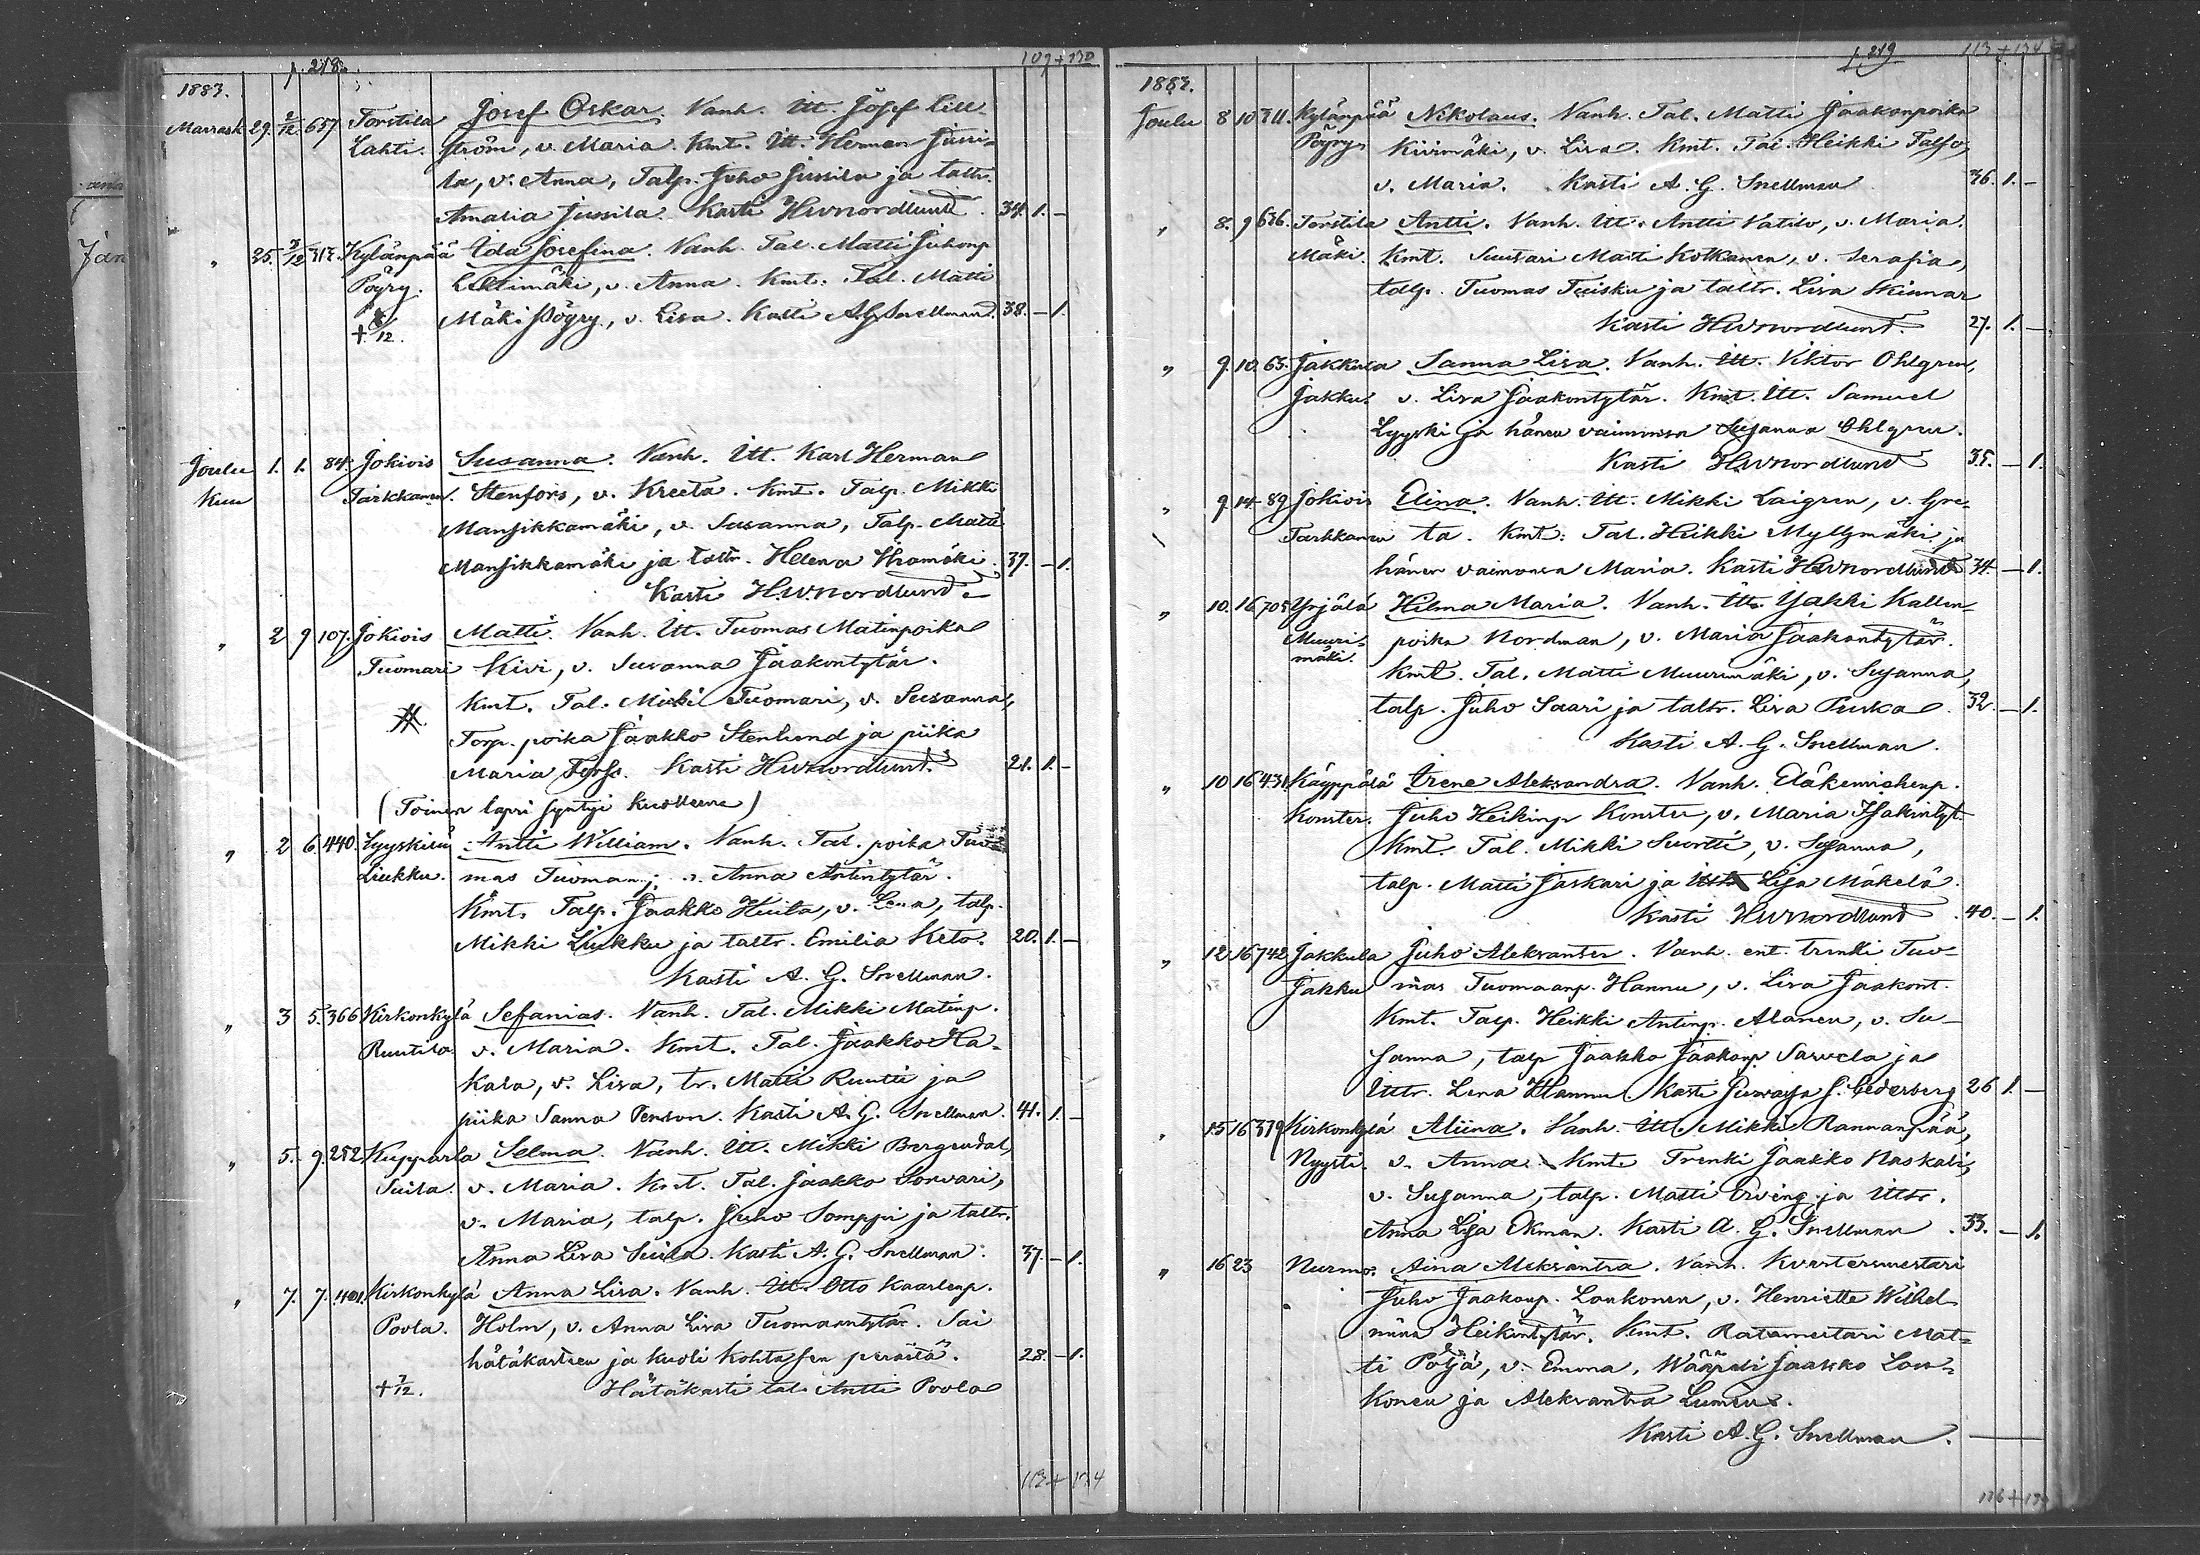 p. 218.
107+130
1883.
Marrask. 29. 2/12 657 Torstila Josef Oskar. Vanh. Itt. Josef Lill-
Lahti. ström, v. Maria. Kmt. Itt. Herman Jussi-
la, v. Anna, Talp. Juho Jussila ja taltr.
Amalia Jussila. Kasti HWNordlund. 34. 1. –
„ 25. 2/12 313. Kylänpää Ida Josefina. Vanh. Tal. Matti Juhonp
Pögry. Lehtimäki, v. Anna. Kmt. Tal. Matti
Mäki Pögry, v. Lisa. Kasti A.G. Snellman. 38. – 1.
+ 8/12.
Joulu 1. 1. 84. Jokivis Susanna. Vanh. Itt. Karl Herman
kuu Tarkkanen. Stenfors, v. Kreeta. Kmt. Talp. Mikki
Mansikkamäki, v. Susanna, Talp. Matti
Mansikkamäki ja taltr. Helena 37. – 1.
Kasti H.W.Nordlund.
„ 2 9 107. Jokivis Matti. Vanh. Itt. Tuomas Matinpoika
Tuomari Kivi, v. Susanna Jaakontytär.
Kmt. Tal. Mikki Tuomari, v. Susanna,
Torp. poika Jaakko Stenlund ja piika
Maria Forss. Kasti HWNordlund. 21. 1. –
(Toinen lapsi syntyi kuolleena)
„ 2 6. 440. Lyyskilä Antti William. Vanh. Tal. poika Tuo-
Liukku. mas Tuomanp. v. Anna Antintytär.
Kmt. Talp. Jaakko Huita, v. Lena, talp.
Mikki Liukku ja taltr. Emilia Keto. 20. 1. –
Kasti A. G. Snellman.
„ 3 5. 366 Kirkonkylä Sefanias. Vanh. Tal. Mikki Matinp.
Ruutila v. Maria. Kmt. Tal. Jaakko Ha-
kala, v. Lisa, tr. Matti Ruutti ja
piika Sanna Penson. Kasti A. G. Snellman. 41. 1. –
„ 5. 9. 252. Kupparla Selma. Vanh. Itt. Mikki Bergendal,
Suila. v. Maria. Kmt. Tal. Jaakko Sorvari,
v. Maria, talp. Juho Somppi ja taltr.
Anna Lisa Suila. Kasti A. G. Snellman. 37. – 1.
„ 7. 7. 401. Kirkonkylä Anna Lisa. Vanh. Itt. Otto Kaarlenp.
Poola. Holm, v. Anna Lisa Tuomaantytär. Sai
hätäkasteen ja kuoli kohta sen perästä. 28. – 1.
+ 7/12. Hätäkasti tal. Antti Poola
113+134
p. 219
113+134
1883.
Joulu 8 10 311. Kylänpää Nikolaus. Vanh. Tal. Matti Jaakonpoika
Pögry Kiirimäki, v. Lisa. Kmt. Tal. Heikki Talso,
v. Maria. Kasti A. G. Snellman 36. 1. –
„ 8. 9 636. Torstila Antti. Vanh. Itt. Antti Vatilo, v. Maria.
Mäki. Kmt. Suutari Matti Kotkanen, v. Serafia,
talp. Tuomas Tuisku ja taltr. Lisa Skinnar
Kasti HWNordlund. 27. 1. –
„ 9. 10. 63. Jakkula Sanna Lisa. Vanh. Itt. Viktor Ohlgren,
Jakku. v. Lisa Jaakontytär. Kmt. Itt. Samuel
Lyyski ja hänen vaimonsa Susanna Ohlgren.
Kasti HWNordlund 35. – 1.
„ 9. 14. 89 Jokivis Elina. Vanh. Itt. Mikki Laigren, v. Gre-
Tarkkanen ta. Kmt: Tal. Heikki Myllymäki ja
hänen vaimonsa Maria. Kasti HWNordlund 34. – 1.
„ 10. 16 705 Yrjälä Hilma Maria. Vanh. Itt. Jakki Kallen-
Muuri-
mäki. poika Nordman, v. Maria Jaakontytär.
Kmt. Tal. Matti Muurimäki, v. Susanna,
talp. Juho Saari ja taltr. Lisa Puska. 32. – 1.
Kasti A. G. Snellman.
„ 10 16 431 Käyppälä Irene Aleksandra. Vanh. Eläkemiehenp.
Konster. Juho Heikinp Konster, v. Maria Isakintyt.
Kmt. Tal. Mikki Suortti, v. Susanna,
talp. Matti Jaskari ja Lisa Mäkelä.
Kasti HWNordlund 40. – 1.
„ 12 16 742 Jakkula Juho Aleksanter. Vanh. ent. trenki Tuo-
Jakku mas Tuomaanp. Hannu, v. Lisa Jaakont.
Kmt. Talp. Heikki Antinp. Alanen, v. Su-
sanna, talp Jaakko Jaakonp Sarvela ja
Ittr. Lena Hannu. Kasti J. Cederberg 26 1. –
„ 15 16 379 Kirkonkylä Aliina. Vanh. Itt. Mikki Rannanpää,
Nyysti. v. Anna. Kmt. Trenki Jaakko Naskali,
v. Susanna, talp. Matti Erving ja Ittr.
Anna Lisa Ekman. Kasti A. G. Snellman. 33. – 1.
„ 16 23 Nurmo. Aina Aleksantra. Vanh. Kvartermestari
Juho Jaakonp. Loukonen, v. Henriette Wilhel-
mina Heikintytär. Kmt. Ratamestari Mat-
ti Poljä, v. Emma, Wääpeli Jaakko Lou-
konen ja Aleksantra Lumen.
Kasti A. G. Snellman.